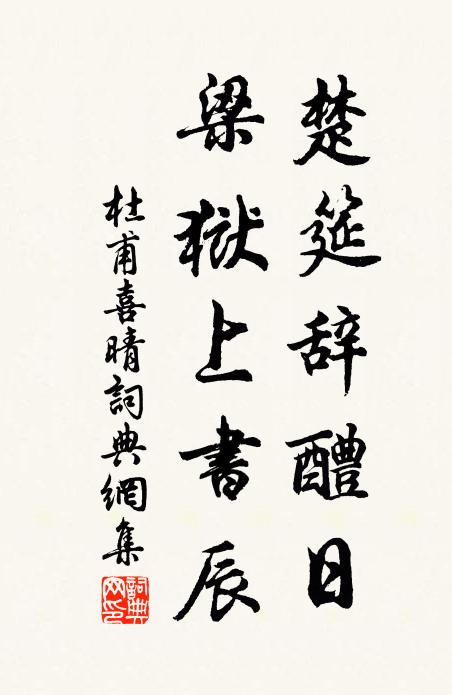 楚筵辞醴日
梁獄上書辰
杜甫喜晴詞典網集
詞典網印